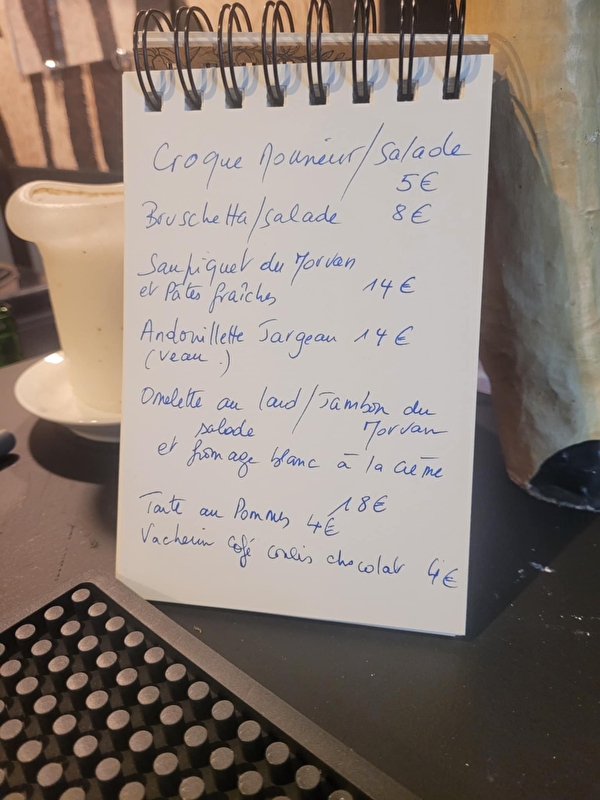 Croque Monsieur/Salade
5€
Bruschetta/salade 8€
Saupiquet du Morvan
et Pâtes fraîches 14€
Andouillette Jargeau 14€
(veau.)
Omelette au lard/Jambon du
salade Morvan
et fromage blanc à la crème
18€
Tarte au Pommes 4€
Vacherin café coulis chocolat 4€